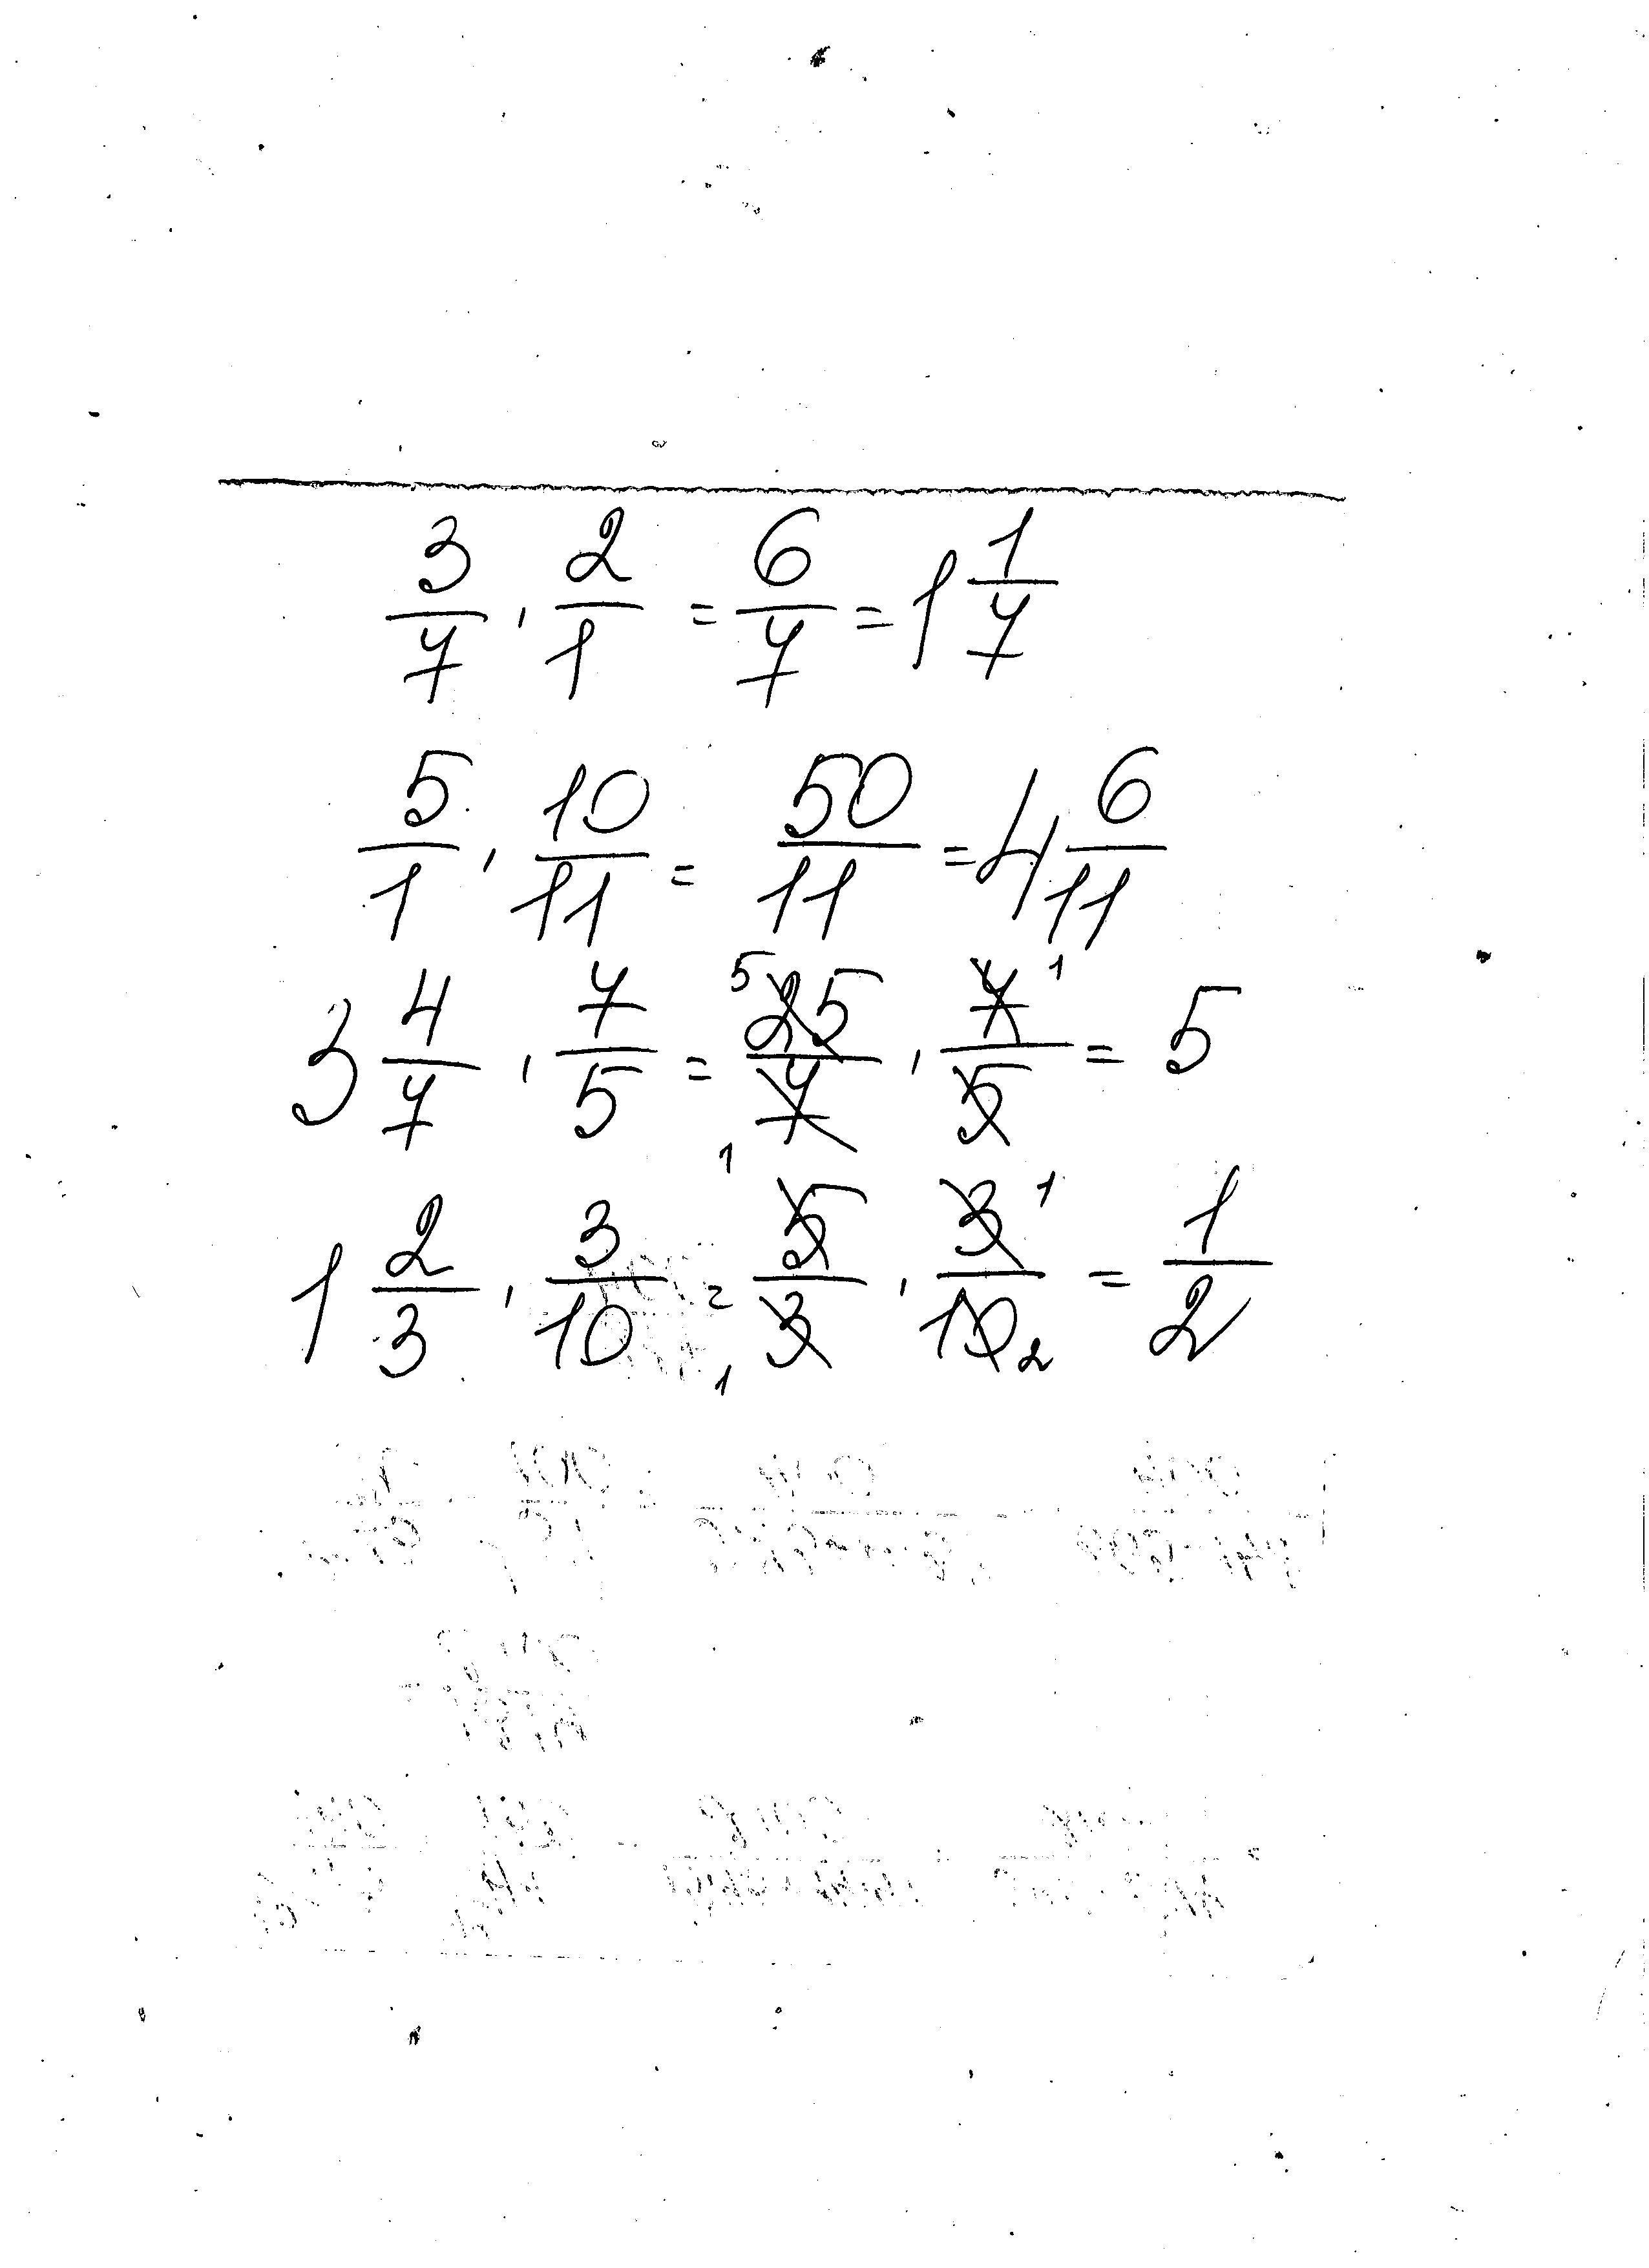 3/7 · 2/1 = 6/7 = 1 1/7
5/1 · 10/11 = 50/11 = 4 6/11
3 4/7 · 7/5 = 5 25/7 1 · 7 1/5 = 5
1 2/3 · 3/10 = 1 5/3 1 · 3 1/10 2 = 1/2